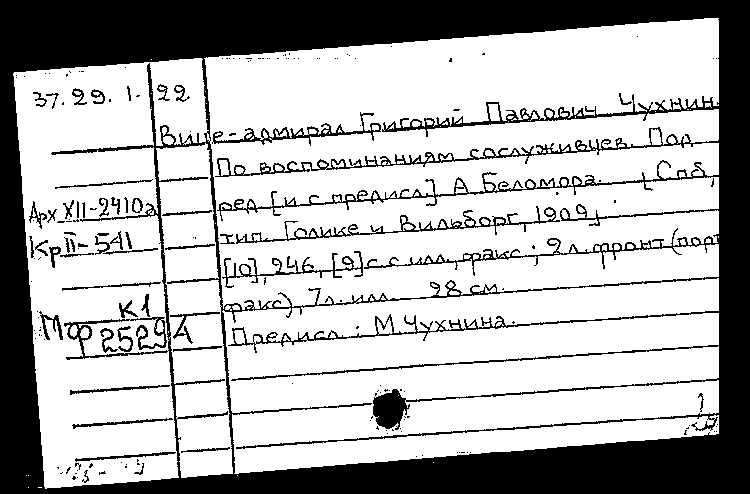 37.29.1.22
Вице-адмирал Григорий Павлович Чухнин.
По воспоминаниям сослуживцев. Под
Арх XII-2410а
ред [и с предисл] А Беломора. [Спб,
Кр II-541
тип. Голике и Вильборг, 1909]
[10], 246, [9] с с илл, факс; 2 л. фронт (порт
факс), 7 л. илл. 28 см.
К1
Мф 2529А
Предисл: М. Чухнина.